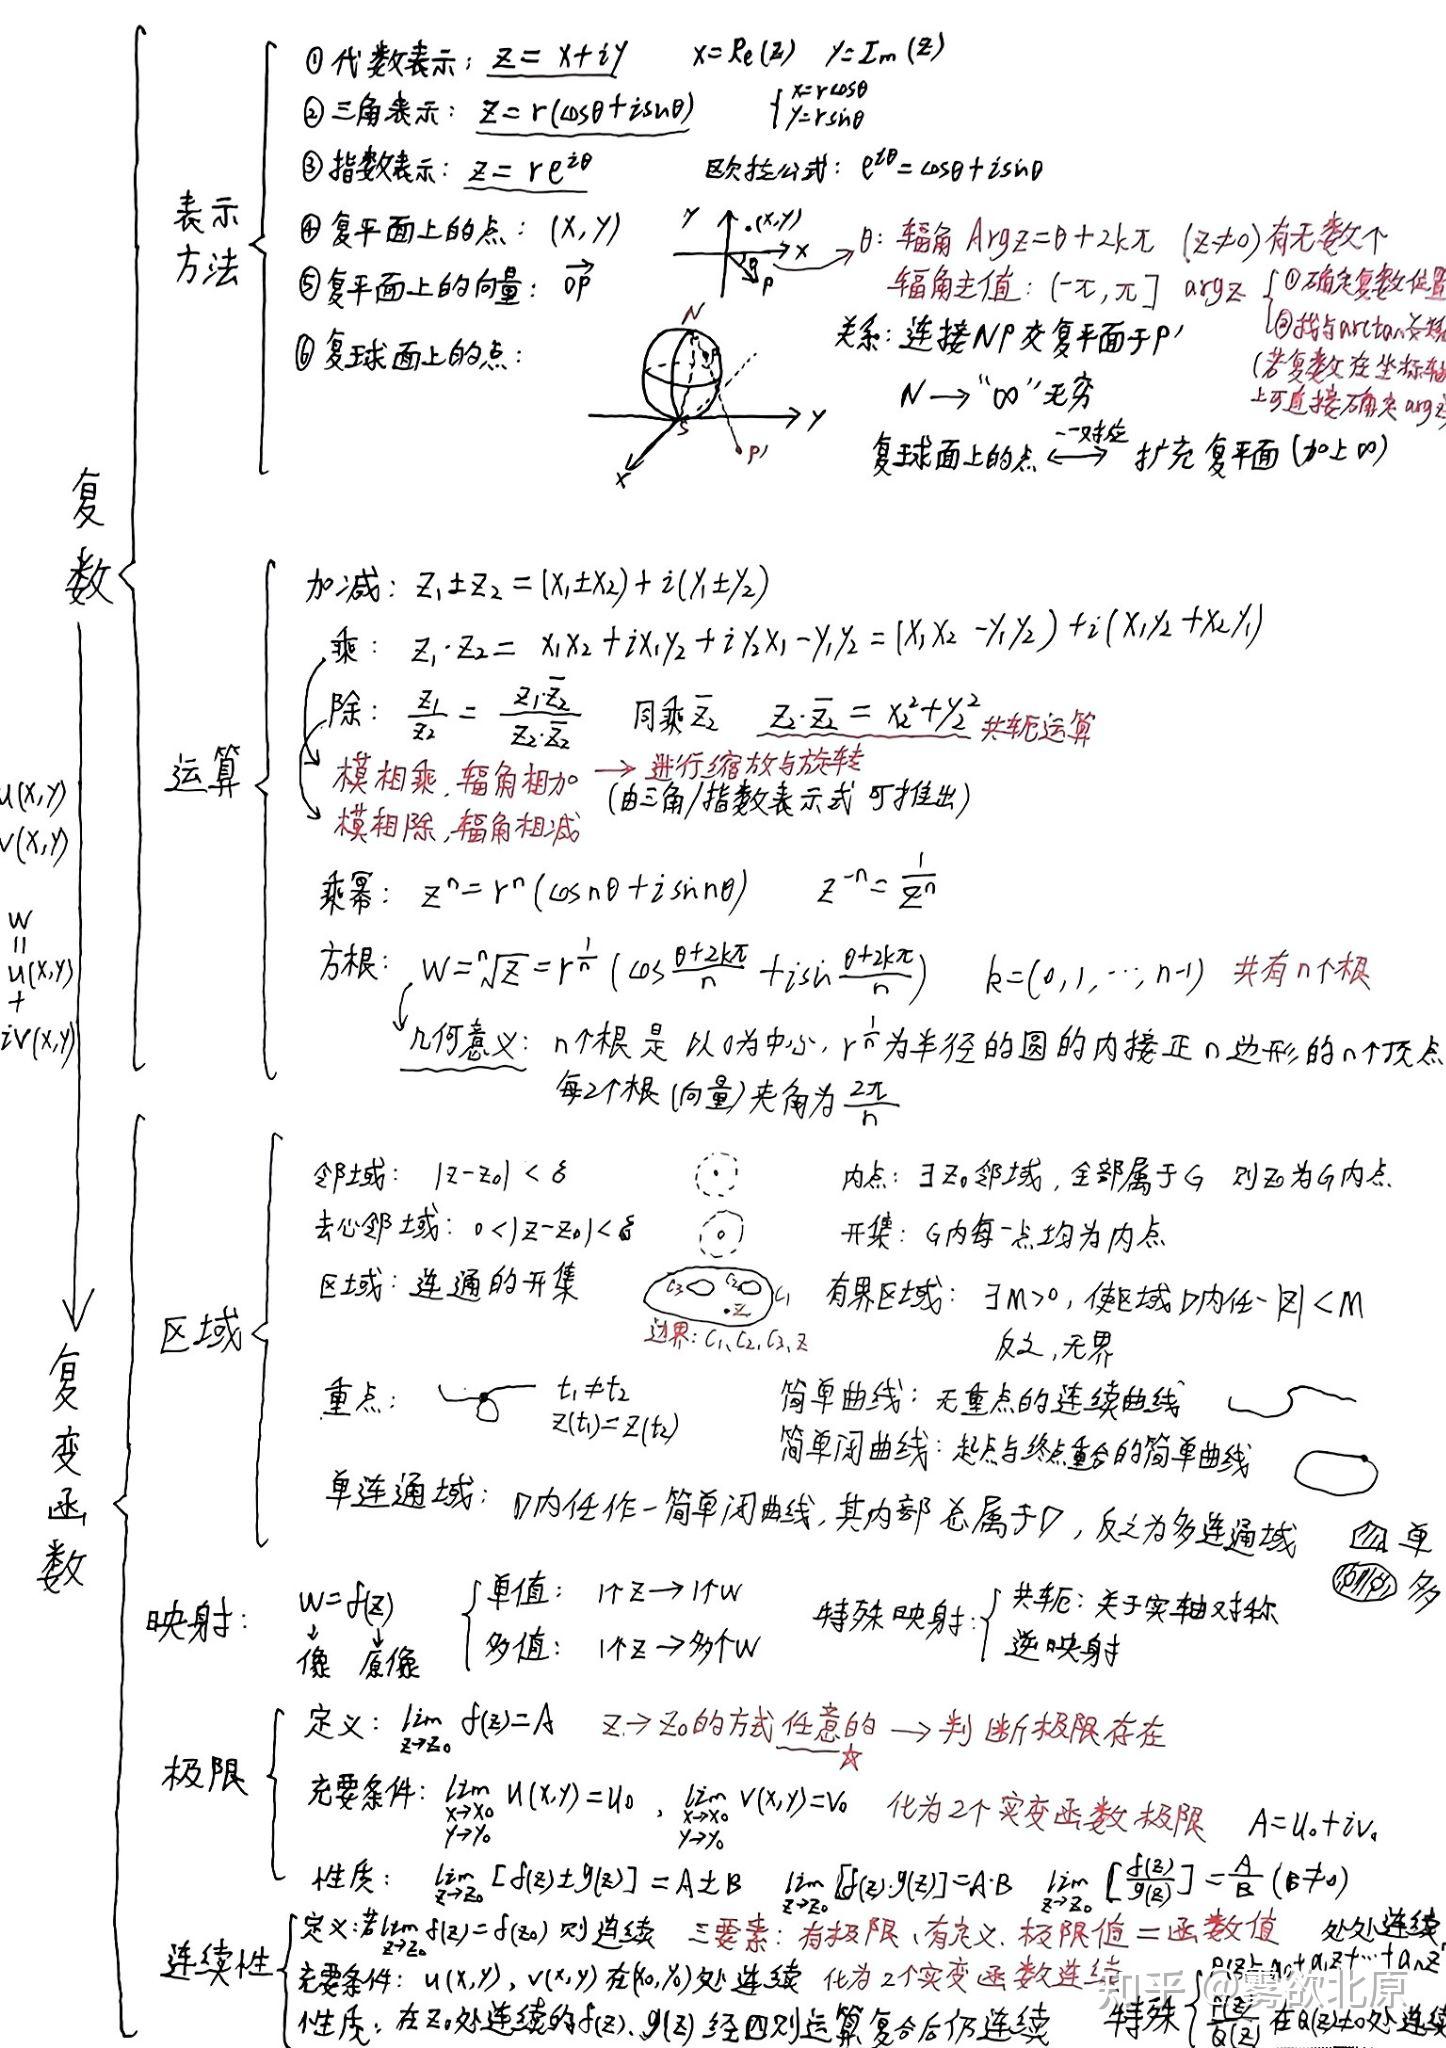 复数
表示方法
① 代数表示: z = x+iy x=Re(z) y=Im(z)
② 三角表示: z=r(cosθ+isinθ) { x=rcosθ
y=rsinθ
③ 指数表示: z=re^{iθ} 欧拉公式: e^{iθ}=cosθ+isinθ
④ 复平面上的点: (x,y) y .(x,y) x θ P
θ: 辐角 Argz=θ+2kπ (z≠0) 有无数个
⑤ 复平面上的向量: \overrightarrow{OP}
辐角主值: (-π,π] argz { ①确定复数位置
②找与arctan
(若复数在坐标轴
上可直接确定argz
⑥ 复球面上的点: N P S P' x y
关系: 连接NP交复平面于P'
N → “∞” 无穷
复球面上的点 ⟷ 扩充复平面 (加上∞)
一一对应
运算
加减: z₁±z₂=(x₁±x₂)+i(y₁±y₂)
乘: z₁·z₂= x₁x₂+ix₁y₂+iy₂x₁-y₁y₂=(x₁x₂-y₁y₂)+i(x₁y₂+x₂y₁)
除: \frac{z₁}{z₂} = \frac{z₁·\bar{z}₂}{z₂·\bar{z}₂} 同乘\bar{z}₂ z₂·\bar{z}₂ = x₂²+y₂² 共轭运算
模相乘,辐角相加 → 进行缩放与旋转
(由三角/指数表示式可推出)
模相除,辐角相减
乘幂: zⁿ=rⁿ(cosnθ+isinnθ) z⁻ⁿ=\frac{1}{zⁿ}
方根: w=ⁿ√z=r^{\frac{1}{n}}(cos\frac{θ+2kπ}{n}+isin\frac{θ+2kπ}{n}) k=(0,1,…,n-1) 共有n个根
几何意义: n个根是以0为中心,r^{\frac{1}{n}}为半径的圆的内接正n边形的n个顶点
每2个根(向量)夹角为\frac{2π}{n}
u(x,y)
v(x,y)
w
=
u(x,y)
+
iv(x,y)
复变函数
区域
邻域: |z-z₀|<δ 内点: ∃z₀邻域,全部属于G 则z₀为G内点
去心邻域: 0<|z-z₀|<δ 开集: G内每一点均为内点
区域: 连通的开集 C₃ C₂ C₁ .z 有界区域: ∃M>0,使区域D内任一|z|<M
边界: C₁、C₂、C₃、z 反之,无界
重点: t₁≠t₂ 简单曲线: 无重点的连续曲线
z(t₁)=z(t₂) 简单闭曲线: 起点与终点重合的简单曲线
单连通域: D内任作一简单闭曲线,其内部总属于D,反之为多连通域 单
多
映射: w=f(z) { 单值: 1个z→1个w 特殊映射: { 共轭: 关于实轴对称
像 原像 多值: 1个z→多个w 逆映射
极限
定义: lim_{z→z₀} f(z)=A z→z₀的方式任意的 → 判断极限存在
☆
充要条件: lim_{x→x₀ y→y₀} u(x,y)=u₀ , lim_{x→x₀ y→y₀} v(x,y)=v₀ 化为2个实变函数极限 A=u₀+iv₀
性质: lim_{z→z₀}[f(z)±g(z)]=A±B lim_{z→z₀}[f(z)·g(z)]=A·B lim_{z→z₀}[\frac{f(z)}{g(z)}]=\frac{A}{B}(B≠0)
连续性
定义:若lim_{z→z₀} f(z)=f(z₀) 则连续 三要素: 有极限、有定义、极限值=函数值 处处连续
充要条件: u(x,y),v(x,y)在(x₀,y₀)处连续 化为2个实变函数连续
性质: 在z₀处连续的f(z)、g(z)经四则运算复合后仍连续
特殊 { P(z)=a₀+a₁z+…+aₙz
\frac{P(z)}{Q(z)} 在Q(z)≠0处连续
知乎 @雾欲北原